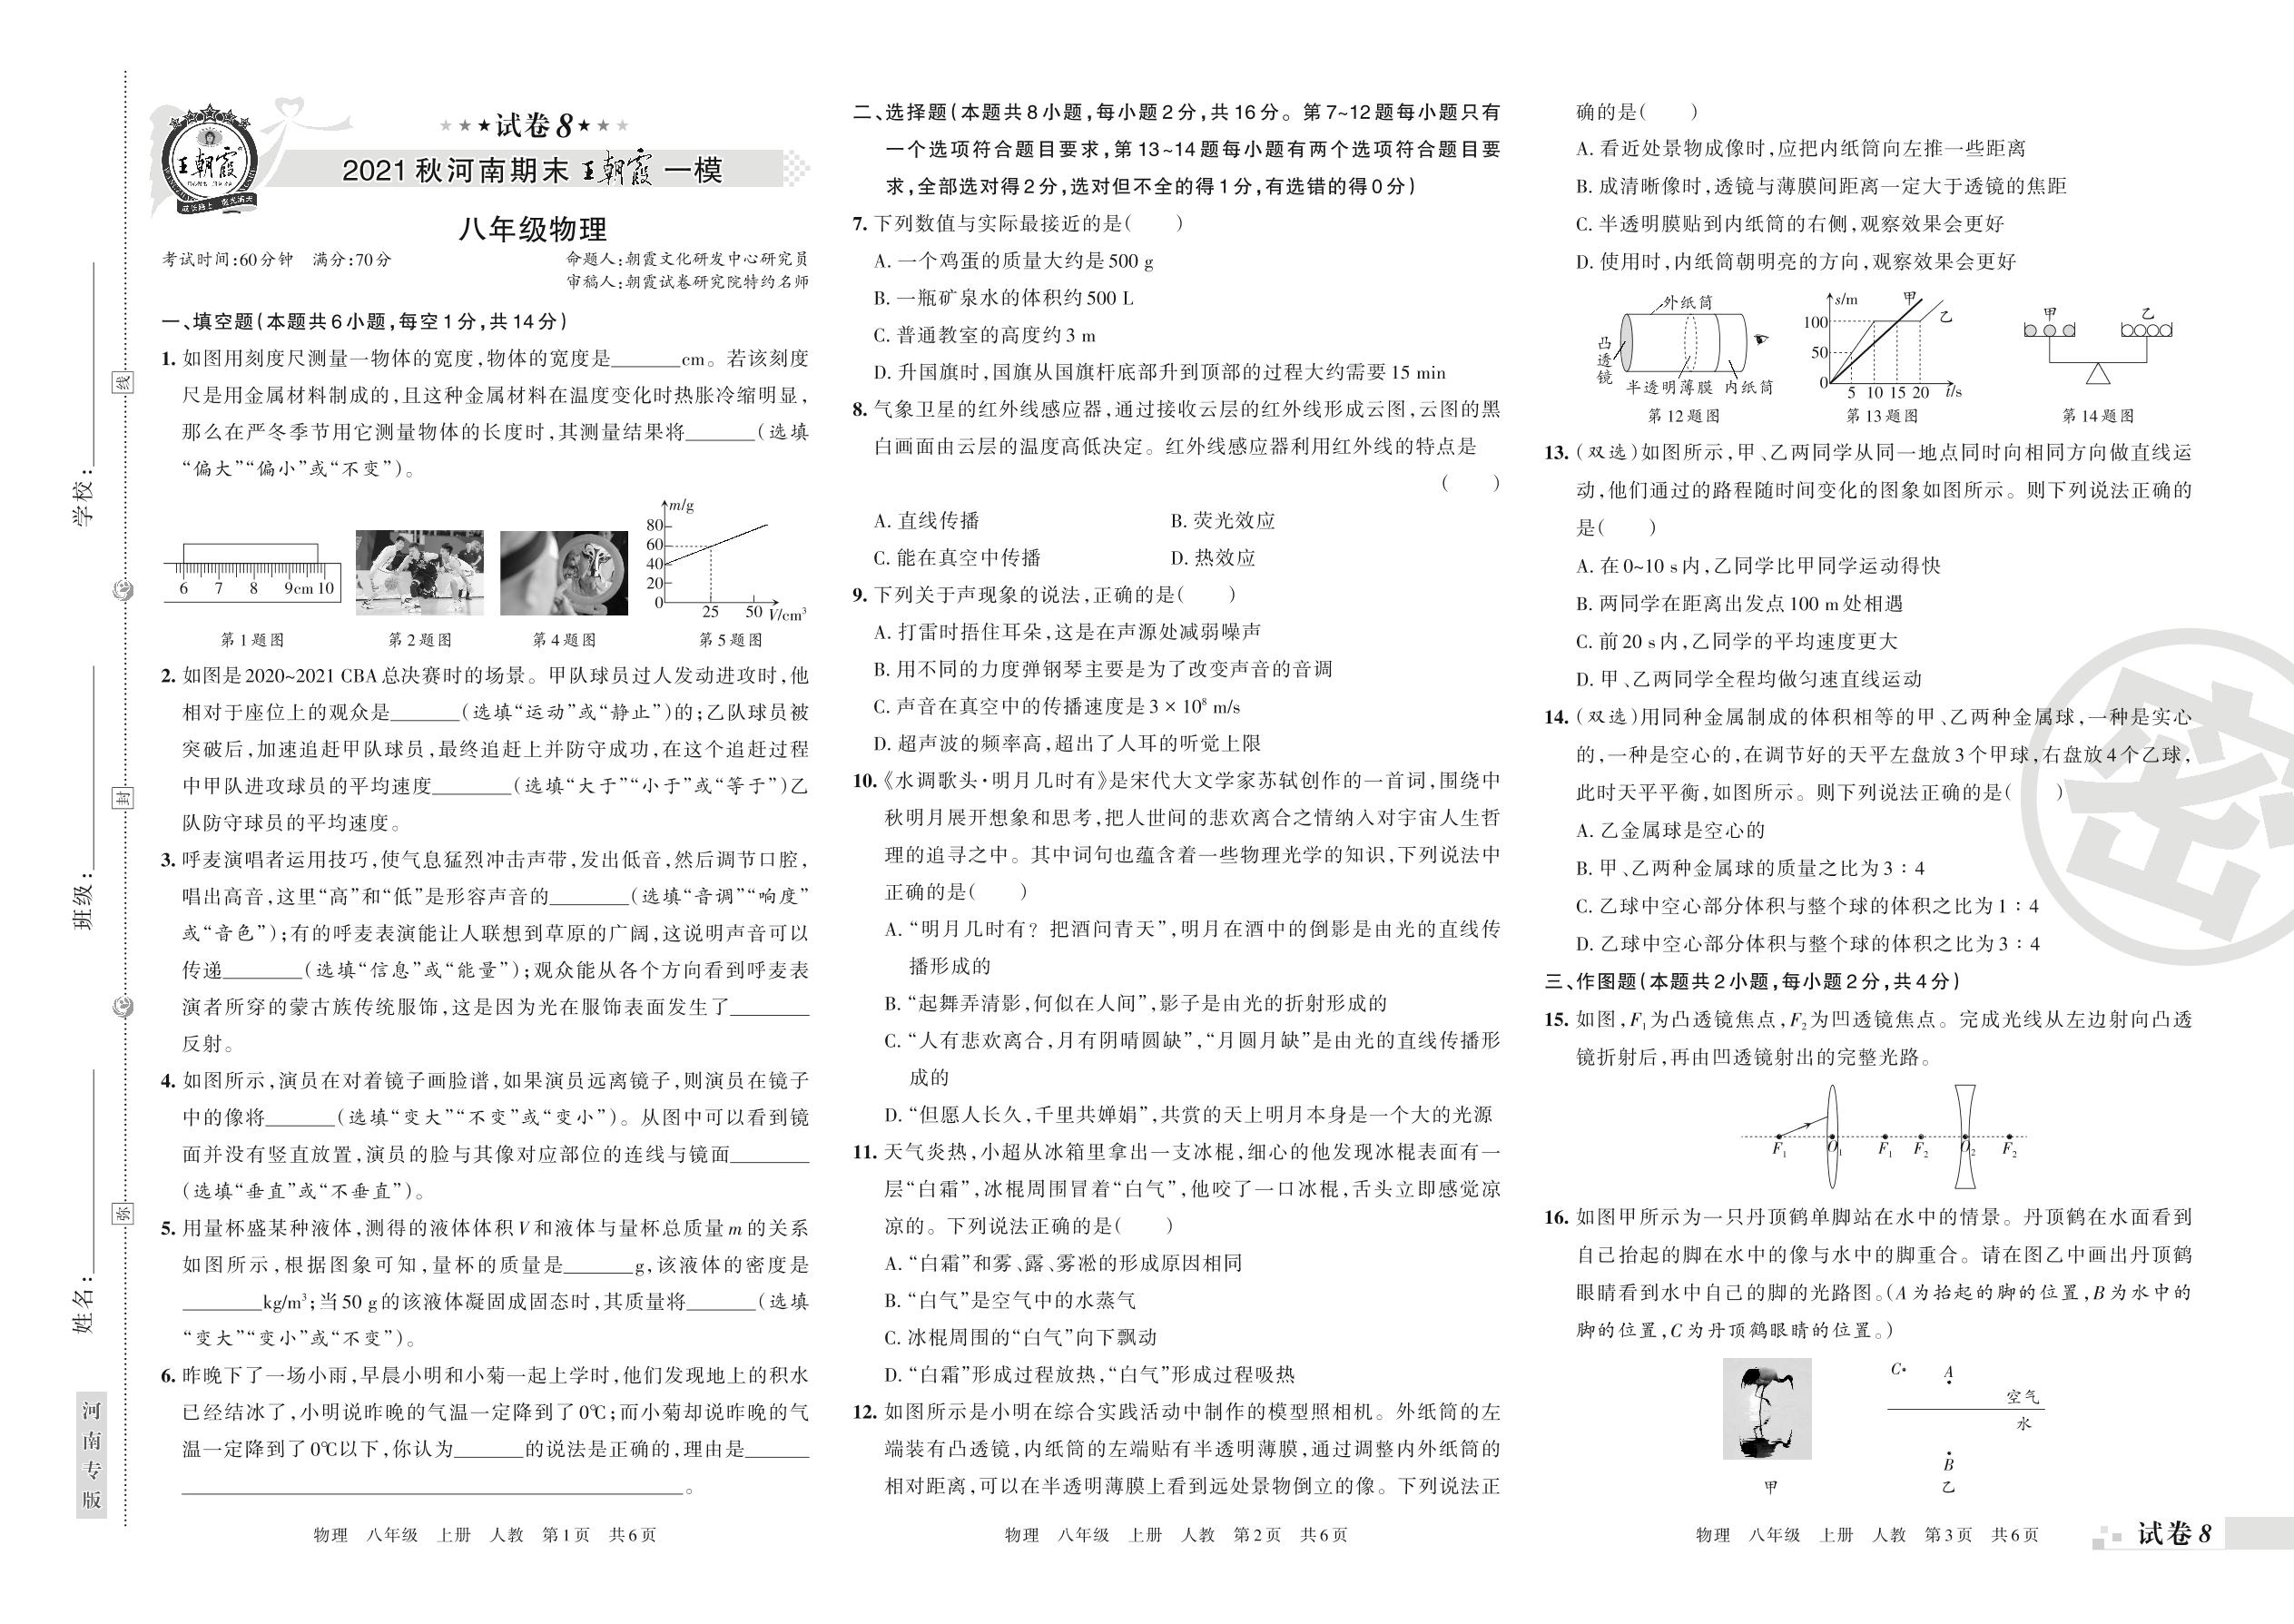 学校：
班级：
姓名：
线
封
弥
河南专版
★★★试卷8★★★
2021秋河南期末王朝霞一模
王朝霞
八年级物理
考试时间:60分钟 满分:70分
命题人:朝霞文化研发中心研究员
审稿人:朝霞试卷研究院特约名师
一、填空题(本题共6小题,每空1分,共14分)
1. 如图用刻度尺测量一物体的宽度,物体的宽度是______cm。若该刻度
尺是用金属材料制成的,且这种金属材料在温度变化时热胀冷缩明显,
那么在严冬季节用它测量物体的长度时,其测量结果将______(选填
“偏大”“偏小”或“不变”)。
6 7 8 9cm 10
m/g
80
60
40
20
0
25 50 V/cm³
第1题图 第2题图 第4题图 第5题图
2. 如图是2020~2021 CBA总决赛时的场景。甲队球员过人发动进攻时,他
相对于座位上的观众是______(选填“运动”或“静止”)的;乙队球员被
突破后,加速追赶甲队球员,最终追赶上并防守成功,在这个追赶过程
中甲队进攻球员的平均速度______(选填“大于”“小于”或“等于”)乙
队防守球员的平均速度。
3. 呼麦演唱者运用技巧,使气息猛烈冲击声带,发出低音,然后调节口腔,
唱出高音,这里“高”和“低”是形容声音的______(选填“音调”“响度”
或“音色”);有的呼麦表演能让人联想到草原的广阔,这说明声音可以
传递______(选填“信息”或“能量”);观众能从各个方向看到呼麦表
演者所穿的蒙古族传统服饰,这是因为光在服饰表面发生了______
反射。
4. 如图所示,演员在对着镜子画脸谱,如果演员远离镜子,则演员在镜子
中的像将______(选填“变大”“不变”或“变小”)。从图中可以看到镜
面并没有竖直放置,演员的脸与其像对应部位的连线与镜面______
(选填“垂直”或“不垂直”)。
5. 用量杯盛某种液体,测得的液体体积V和液体与量杯总质量m的关系
如图所示,根据图象可知,量杯的质量是______g,该液体的密度是
______kg/m³;当50 g的该液体凝固成固态时,其质量将______(选填
“变大”“变小”或“不变”)。
6. 昨晚下了一场小雨,早晨小明和小菊一起上学时,他们发现地上的积水
已经结冰了,小明说昨晚的气温一定降到了0℃;而小菊却说昨晚的气
温一定降到了0℃以下,你认为______的说法是正确的,理由是______
______。
物理 八年级 上册 人教 第1页 共6页
二、选择题(本题共8小题,每小题2分,共16分。第7~12题每小题只有
一个选项符合题目要求,第13~14题每小题有两个选项符合题目要
求,全部选对得2分,选对但不全的得1分,有选错的得0分)
7. 下列数值与实际最接近的是( )
A. 一个鸡蛋的质量大约是500 g
B. 一瓶矿泉水的体积约500 L
C. 普通教室的高度约3 m
D. 升国旗时,国旗从国旗杆底部升到顶部的过程大约需要15 min
8. 气象卫星的红外线感应器,通过接收云层的红外线形成云图,云图的黑
白画面由云层的温度高低决定。红外线感应器利用红外线的特点是
( )
A. 直线传播 B. 荧光效应
C. 能在真空中传播 D. 热效应
9. 下列关于声现象的说法,正确的是( )
A. 打雷时捂住耳朵,这是在声源处减弱噪声
B. 用不同的力度弹钢琴主要是为了改变声音的音调
C. 声音在真空中的传播速度是3 × 10⁸ m/s
D. 超声波的频率高,超出了人耳的听觉上限
10.《水调歌头·明月几时有》是宋代大文学家苏轼创作的一首词,围绕中
秋明月展开想象和思考,把人世间的悲欢离合之情纳入对宇宙人生哲
理的追寻之中。其中词句也蕴含着一些物理光学的知识,下列说法中
正确的是( )
A. “明月几时有? 把酒问青天”,明月在酒中的倒影是由光的直线传
播形成的
B. “起舞弄清影,何似在人间”,影子是由光的折射形成的
C. “人有悲欢离合,月有阴晴圆缺”,“月圆月缺”是由光的直线传播形
成的
D. “但愿人长久,千里共婵娟”,共赏的天上明月本身是一个大的光源
11. 天气炎热,小超从冰箱里拿出一支冰棍,细心的他发现冰棍表面有一
层“白霜”,冰棍周围冒着“白气”,他咬了一口冰棍,舌头立即感觉凉
凉的。下列说法正确的是( )
A. “白霜”和雾、露、雾凇的形成原因相同
B. “白气”是空气中的水蒸气
C. 冰棍周围的“白气”向下飘动
D. “白霜”形成过程放热,“白气”形成过程吸热
12. 如图所示是小明在综合实践活动中制作的模型照相机。外纸筒的左
端装有凸透镜,内纸筒的左端贴有半透明薄膜,通过调整内外纸筒的
相对距离,可以在半透明薄膜上看到远处景物倒立的像。下列说法正
物理 八年级 上册 人教 第2页 共6页
确的是( )
A. 看近处景物成像时,应把内纸筒向左推一些距离
B. 成清晰像时,透镜与薄膜间距离一定大于透镜的焦距
C. 半透明膜贴到内纸筒的右侧,观察效果会更好
D. 使用时,内纸筒朝明亮的方向,观察效果会更好
外纸筒
凸透镜
半透明薄膜 内纸筒
第12题图
s/m 甲
乙
100
50
0
5 10 15 20 t/s
第13题图
甲 乙
第14题图
13. (双选)如图所示,甲、乙两同学从同一地点同时向相同方向做直线运
动,他们通过的路程随时间变化的图象如图所示。则下列说法正确的
是( )
A. 在0~10 s内,乙同学比甲同学运动得快
B. 两同学在距离出发点100 m处相遇
C. 前20 s内,乙同学的平均速度更大
D. 甲、乙两同学全程均做匀速直线运动
14. (双选)用同种金属制成的体积相等的甲、乙两种金属球,一种是实心
的,一种是空心的,在调节好的天平左盘放3个甲球,右盘放4个乙球,
此时天平平衡,如图所示。则下列说法正确的是( )
A. 乙金属球是空心的
B. 甲、乙两种金属球的质量之比为3∶4
C. 乙球中空心部分体积与整个球的体积之比为1∶4
D. 乙球中空心部分体积与整个球的体积之比为3∶4
密
三、作图题(本题共2小题,每小题2分,共4分)
15. 如图,F₁为凸透镜焦点,F₂为凹透镜焦点。完成光线从左边射向凸透
镜折射后,再由凹透镜射出的完整光路。
F₁ O₁ F₁ F₂ O₂ F₂
16. 如图甲所示为一只丹顶鹤单脚站在水中的情景。丹顶鹤在水面看到
自己抬起的脚在水中的像与水中的脚重合。请在图乙中画出丹顶鹤
眼睛看到水中自己的脚的光路图。(A为抬起的脚的位置,B为水中的
脚的位置,C为丹顶鹤眼睛的位置。)
C A
空气
水
B
甲 乙
物理 八年级 上册 人教 第3页 共6页
试卷8